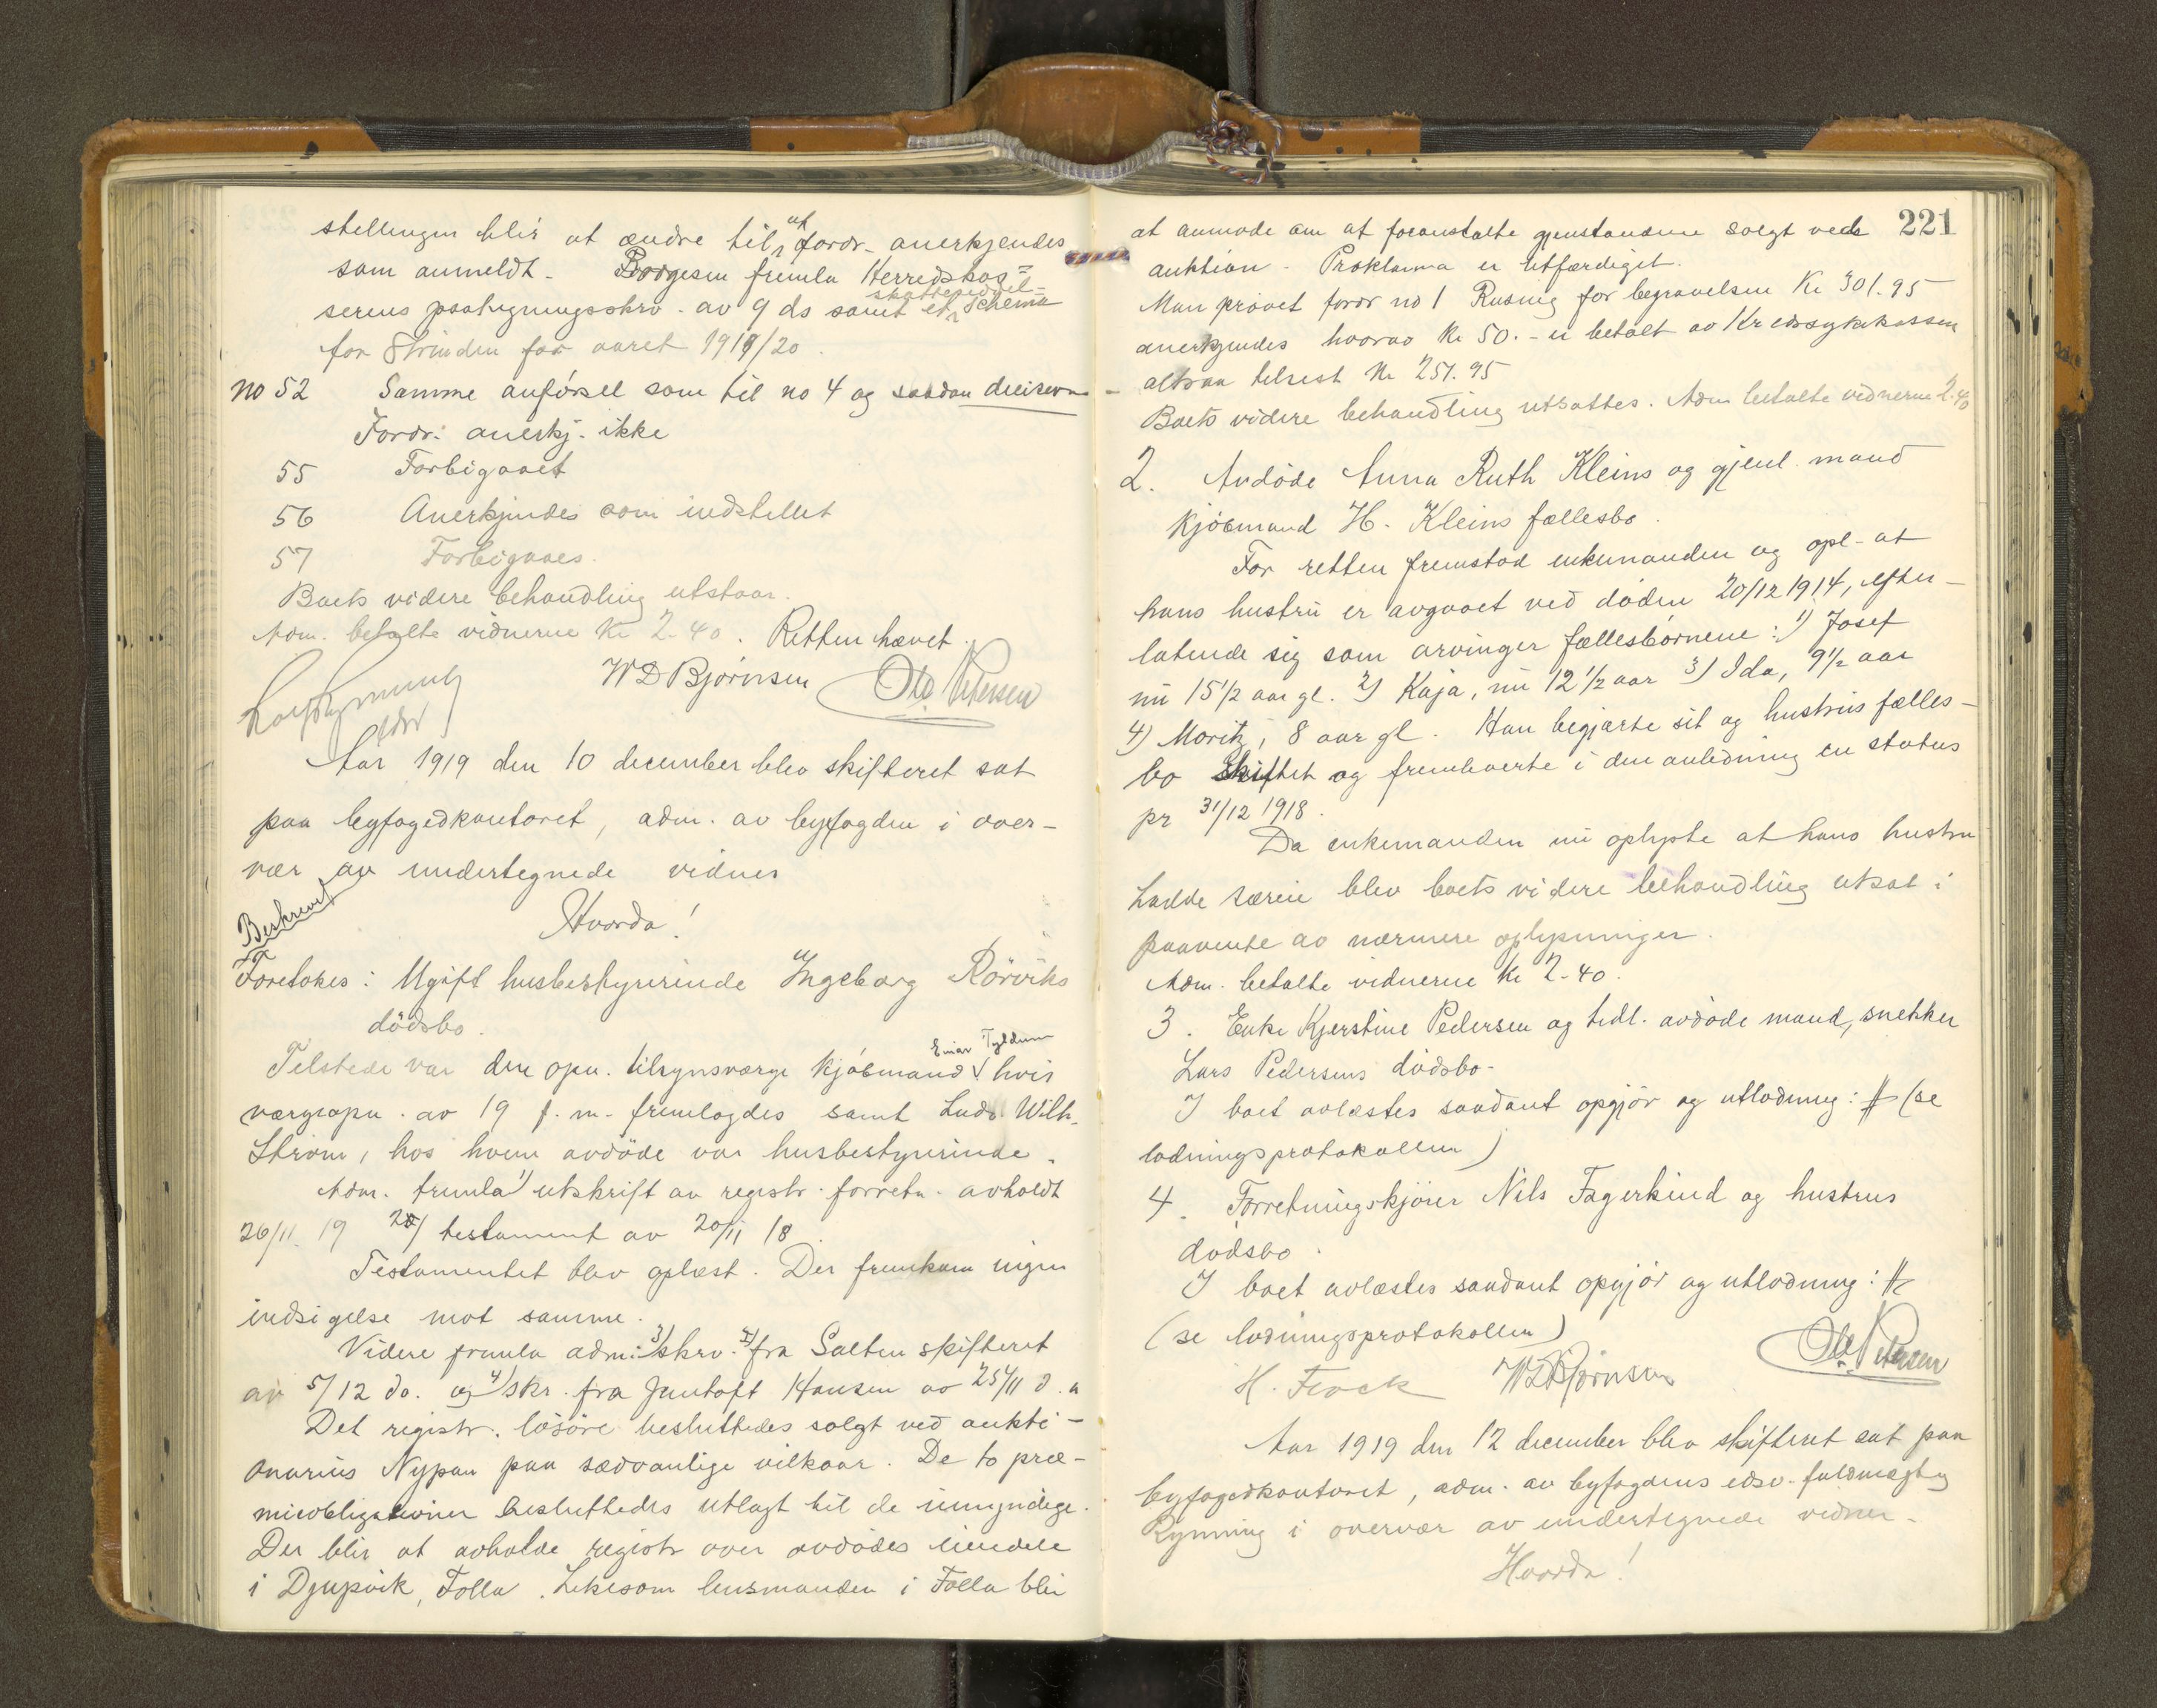 stellingen blir at ændre til at fordr. anerkjendes
som anmeldt. Borgesen fremla Herredskas=
serens paategningsskrv. av 9 ds samt et skatteseddel- schema
for Strinden for aaret 1919/20.
no 52 Samme anførsel som til no 4 og saadan decision
Fordr. anerkj. ikke
55 Forbigaaet
56 Anerkjendes som indstillet
57 Forbigaaes.
Boets videre behandling utstaar.
Adm. betalte vidnerne Kr 2.40. Retten hævet.
WD Bjørnsen Ole Petersen
Aar 1919 den 10 december blev skifteret sat
paa byfogedkontoret, adm. av byfogden i over-
vær av undertegnede vidner
Beskrevet
Hvorda!
Foretokes: Ugift husbestyrerinde Ingeborg Rörviks
dödsbo.
Tilstede var den opn. tilsynsværge kjøbmand Einar Tyldum hvis
værgeopn. av 19 f. m. fremlagdes samt Ludv. Wilh.
Strøm, hos hvem avdöde var husbestyrerinde.
Adm. fremla 1) utskrift av registr. forretn. avholdt
26/11 19 2) testament av 20/11 18.
Testamentet blev oplæst. Der fremkom ingen
indsigelse mot samme.
Videre fremla adm: 3) skrv. fra Salten skifteret
av 5/12 do. og 4) skr. fra Jentoft Hansen av 25/11 d. a
Det registr. løsøre besluttedes solgt ved aukti-
onarius Nypan paa sædvanlige vilkaar. De to præ-
mieobligationer besluttedes utlagt til de umyndige.
Der blir at avholde registr over avdödes eiendele
i Djupvik, Folla. Likesom lensmanden i Folla blir
221
at anmode om at foranstalte gjenstandene solgt ved
auktion. Proklama er utfærdiget.
Man prøvet fordr no 1 Rusing for begravelsen Kr 301.95
anerkjendes hvorav Kr 50.- er betalt av Kredssykekassen
altsaa tilrest Kr 251.95
Boets videre behandling utsattes. Adm betalte vidnerne 2.40
2. Avdöde Anna Ruth Kleins og gjenl. mand
kjøbmand H. Kleins fællesbo.
For retten fremstod enkemanden og opl. at
hans hustru er avgaaet ved døden 20/12 1914, efter-
latende sig som arvinger fællesbørnene: 1) Josef
nu 15 1/2 aar gl. 2) Kaja, nu 12 1/2 aar 3) Ida, 9 1/2 aar
4) Moritz, 8 aar gl. Han begjærte sit og hustrus fælles-
bo skiftet og fremleverte i den anledning en status
pr 31/12 1918.
Da enkemanden nu oplyste at hans hustru
hadde særeie blev boets videre behandling utsat i
paavente av nærmere oplysninger.
Adm. betalte vidnerne Kr 2.40.
3. Enke Kjerstine Pedersen og tidl. avdøde mand, snekker
Lars Pedersens dödsbo.
I boet avlæstes saadant opgjør og utlodning: # (se
lodningsprotokollen)
4. Forretningskjører Nils Fagerkind og hustrus
dødsbo.
I boet avlæstes saadant opgjør og utlodning: #
(se lodningsprotokollen)
H. Flock WD Bjørnsen Ole Petersen
Aar 1919 den 12 december blev skifteret sat paa
byfogedkontoret, adm. av byfogdens edsv. fuldmægtig
Rynning i overvær av undertegnede vidner.
Hvorda!